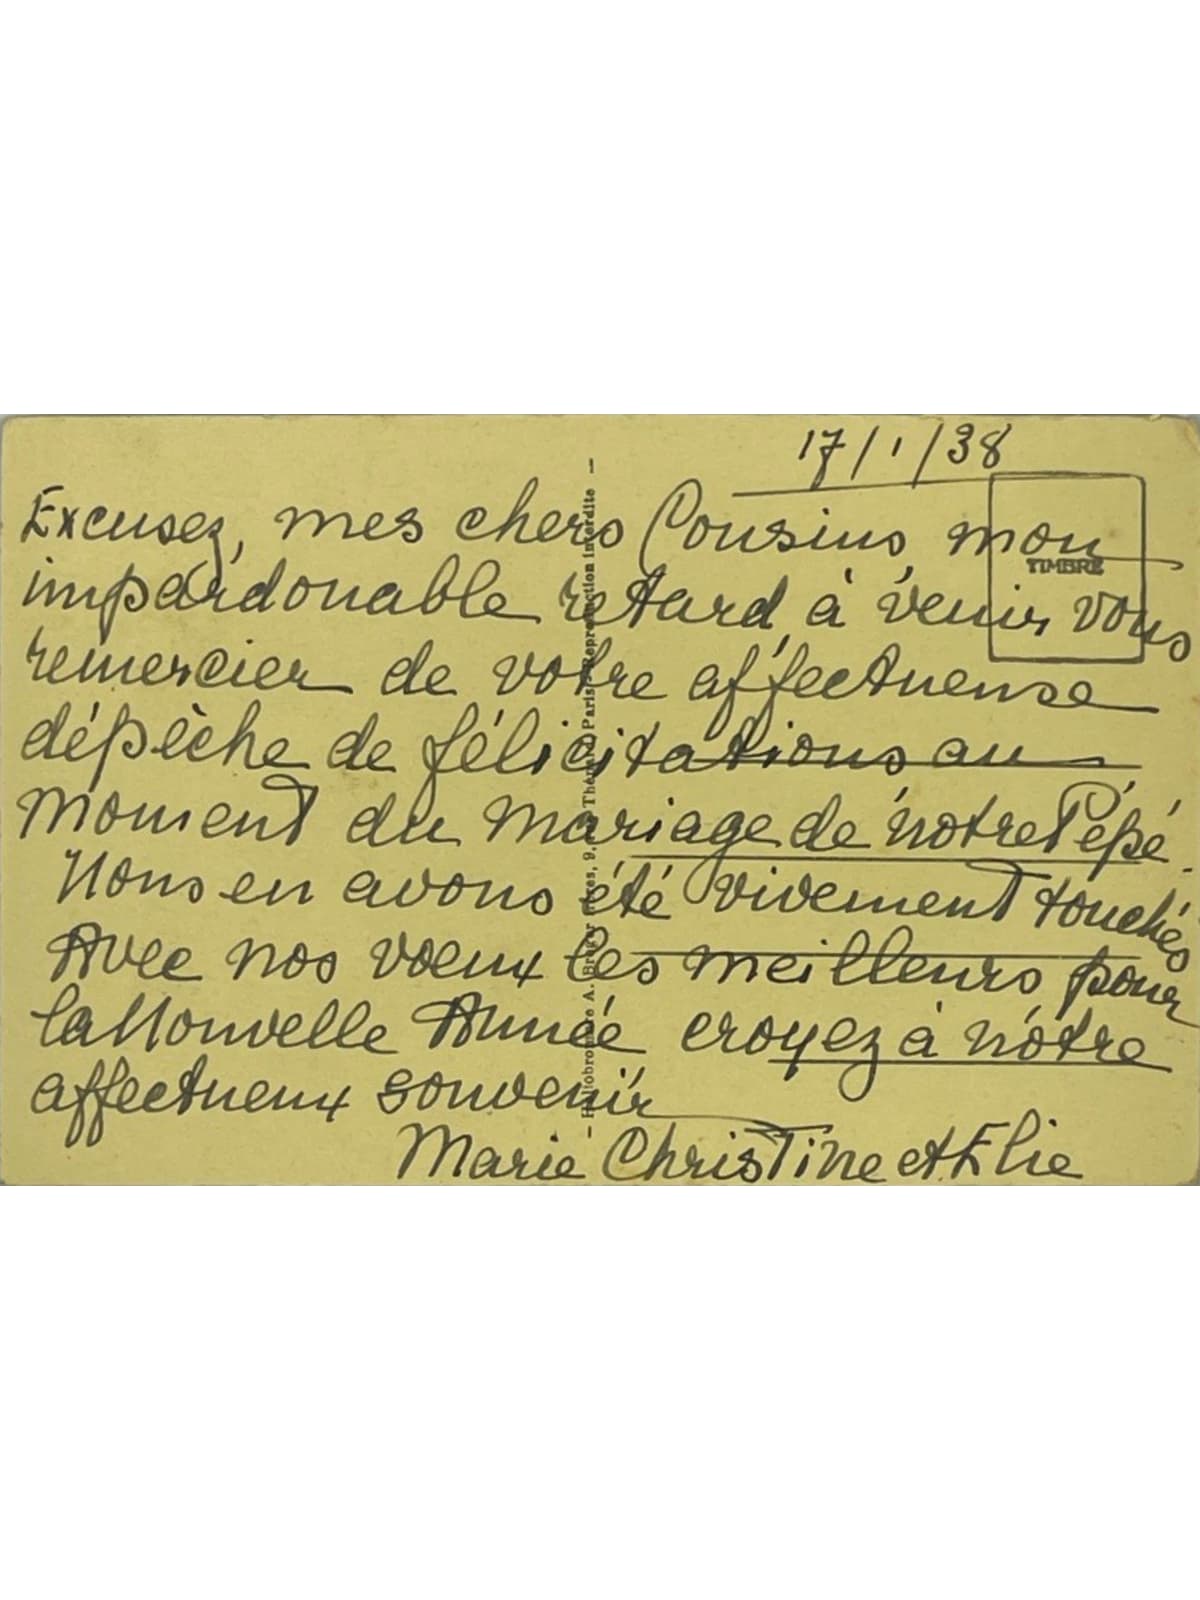 17/1/38
TIMBRE
Excusez, mes chers Cousins mon
impardonable retard à venir vous
remercier de votre affectueuse
dépêche de félicitations au
moment du mariage de notre Pépé.
Nous en avons été vivement touchés
Avec nos voeux les meilleurs pour
la Nouvelle Année croyez à notre
affectueux souvenir
Marie Christine et Elie
Paris Reproduction interdite —